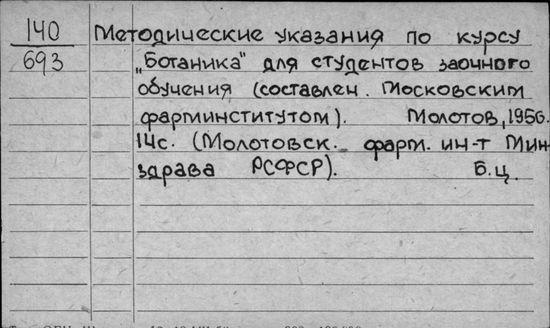 140 Методические указания по курсу
693 „Ботаника" для студентов заочного
обучения (составлен. Московским
фарминститутом). Молотов, 1956.
14с. (Молотовск. фарм. ин-т Мин-
здрава РСФСР). Б.ц.